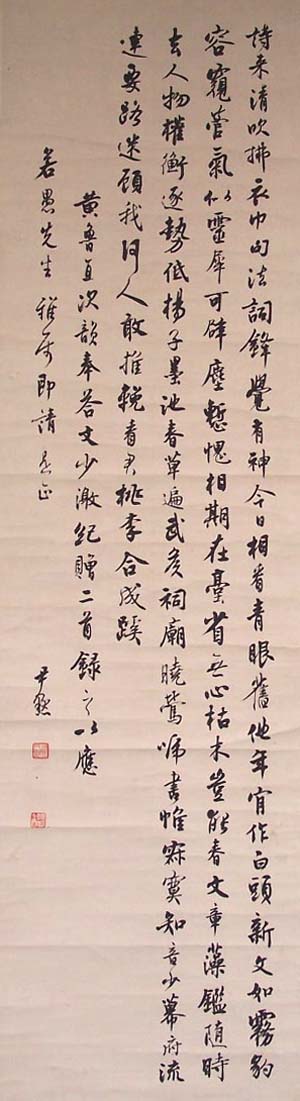 詩来清吹拂衣巾句法詞鋒覺有神今日相看青眼舊他年肯作白頭新文如霧豹
容窺管氣似靈犀可辟塵慙愧相期在臺省無心枯木豈能春文章藻鑑隨時
去人物權衡逐勢低楊子墨池春草遍武侯祠廟曉鶯啼書帷寂寞知音少幕府流
連要路迷顧我何人敢推輓看君桃李合成蹊
黄魯直次韻奉答文少激紀贈二首録之以應
若愚先生雅屬即請是正
尹默